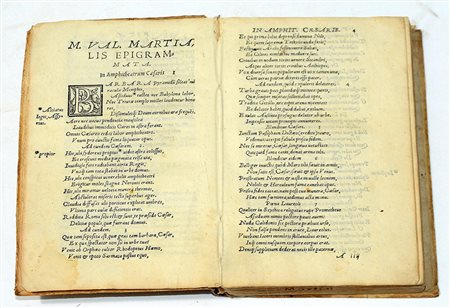 M. VAL. MARTIA,
LIS EPIGRAM,
MATA.
In Amphitheatrum Cæsaris 1
BARBARA Pyramidū sileat mi
racula Memphis,
Assiduus iactet nec Babylona labor,
Nec Triuiæ templo molles laudentur hono
res,
Aëre nec vacuo pendentia
Laudibus immodicis Cares in astra ferant.
Omnis Cæsareo cedat labor amphitheatro.
Vnum pro cunctis fama loquatur opus.
Ad eundem Cæsarem. 2
Hic vbi sydereus propius videt astra colossus,
Et crescunt media pegmata celsa via,
Inuidiosa feri radiabant atria Regis;
Vnaq; iam tota stabat in vrbe domus.
Hic, vbi conspicui venerabilis amphitheatri
Erigitur moles, stagna Neronis erant.
Hic, vbi miramur velocia munera thermas,
Abstulerat miseris tecta superbus ager.
Claudia diffusas vbi porticus explicat vmbras,
Vltima pars aulæ deficientis erat.
Reddita Roma sibi est: & sunt, te præside Cæsar,
Deliciæ populi, quæ fuerant domini.
Ad eundem. 3
Quæ tam seposita est, quæ gens tam barbara, Cæsar,
Ex qua spectator non sit in vrbe tua?
Venit ab Orphæo cultor Rhodopeius Hæmo,
Venit & epoto Sarmata pastus equo,
IN AMPHIT. CÆSARIS.
Et qui prima bibit deprensi flumina Nili,
Et quem supremæ Tethyos vnda ferit.
Festinauit Arabs, festinauere Sabæi,
Et Cilices nimbis hic maduere suis.
Crinibus in nodum tortis venere Sicambri,
Atque aliter tortis crinibus Aethiopes.
Vox diuersa sonat: populorum est vox tamen vna,
Cum verus patriæ diceris esse pater.
Ad eundem,
Turba grauis paci, placidæq; inimica quieti,
Quæ semper miseras sollicitabat opes,
Traducta
Et delator habet quod dabat exilium.
Exulat Ausonia profugus delator ab vrbe.
Impensis vitam principis annumeres.
Blanditur Cæsari.
Iunctam Pasiphaën Dictæo credite tauro,
Vidimus, accepit fabula prisca fidem.
Nec se miretur, Cæsar, longæua vetustas,
Quicquid fama canit, donat arena tibi.
Blanditur eidem.
Belliger inuictis quod Mars tibi sæuit in armis,
Non satis est, Cæsar; sæuit & ipsa Venus.
Prostratum Nemees & vasta in valle leonem,
Nobile & Herculeum fama canebat opus.
Prisca fides taceat: nam post tua munera, Cæsar,
Hæc iam fœminea
Pœna Laureoli 7
Qualiter in Scythica religatus rupe Prometheus
Assiduam nimio pectore pauit auem:
Nuda Caledonio sic pectora præbuit vrso,
Non falsa pendens in cruce Laureolus.
Viuebant laceri membris stillantibus artus,
Inq; omni nusquam corpore corpus erat.
Denique supplicium
A iij